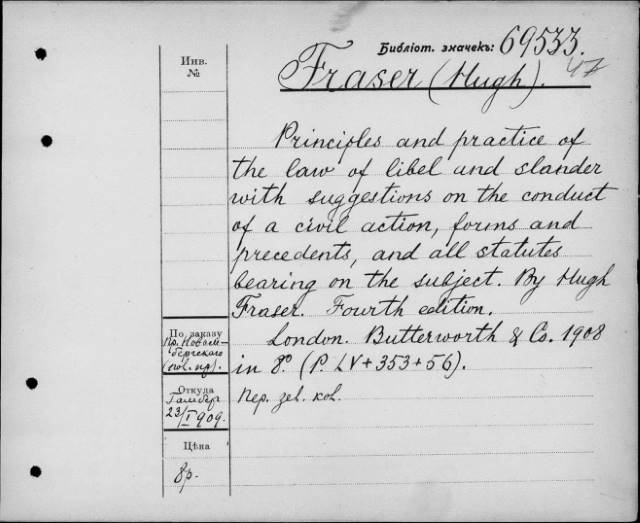 Инв.
№
Библіот. значекъ: 69533.
Fraser (Hugh).
Principles and practice of
the law of libel and slander
with suggestions on the conduct
of a civil action, forms and
precedents, and all statutes
bearing on the subject. By Hugh
Fraser. Fourth edition.
London. Butterworth & Co. 1908
in 8º. (P. LV+353+56).
Пер. зел. кол.
По заказу
Откуда
23/I 909.
Цѣна
8р.